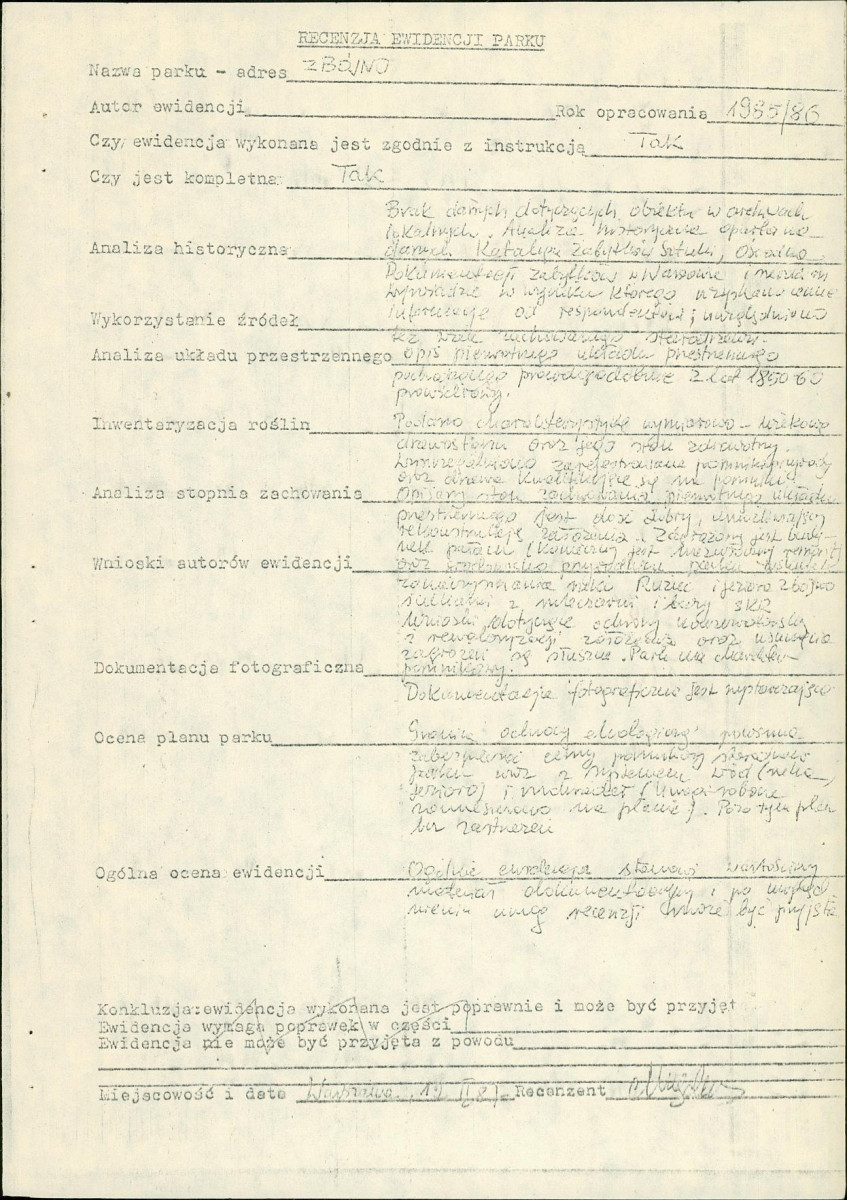 RECENZJA EWIDENCJI PARKU
Nazwa parku - adres ZBÓJNO
Autor ewidencji Rok opracowania 1985/86
Czy ewidencja wykonana jest zgodnie z instrukcją Tak
Czy jest kompletna Tak
Brak danych dotyczących obiektu w archiwach
lokalnych. Analiza historyczna oparta na
Analiza historyczna danych Katalogu Zabytków Sztuki, Ośrodka
Dokumentacji Zabytków w Warszawie i
w wyniku którego uzyskano
Wykorzystanie źródeł informacje od respondentów; uwzględniono
też wiek zachowanego starodrzewu.
Analiza układu przestrzennego opis pierwotnego układu przestrzennego
pochodzącego prawdopodobnie z lat 1850-60
prawidłowy.
Inwentaryzacja roślin Podano charakterystykę wymiarowo - wiekową
drzewostanu oraz jego stan zdrowotny.
zarejestrowane pomniki przyrody
oraz drzewa kwalifikujące się na pomniki.
Analiza stopnia zachowania Opisany stan zachowania pierwotnego układu
przestrzennego jest dość dobry, umożliwiający
rekonstrukcję założenia. Zagrożony jest budy-
nek pałacu (konieczny jest remont)
Wnioski autorów ewidencji oraz środowisko przyrodnicze parku wskutek
zanieczyszczania rzeki Ruziec i jeziora Zbójno
ściekami z mleczarni i bazy SKR
Wnioski dotyczące ochrony konserwatorskiej
i rewaloryzacji założenia oraz usunięcia
zagrożeń są słuszne. Park ma charakter
Dokumentacja fotograficzna pomnikowy.
Dokumentacja fotograficzna jest wystarczająca
Ocena planu parku Granica ochrony ekologicznej powinna
zabezpieczać cenny pomnikowy starodrzew
parku wraz z systemem wód (rzeka,
jezioro) i (Uwagi robocze
naniesiono na planie). Poza tym plan
bez zastrzeżeń
Ogólna ocena ewidencji Ogólnie ewidencja stanowi wartościowy
materiał dokumentacyjny i po uwzględ-
nieniu uwag recenzji może być przyjęta
Konkluzja: ewidencja wykonana jest poprawnie i może być przyjęt
Ewidencja wymaga poprawek w części
Ewidencja nie może być przyjęta z powodu
Miejscowość i data Warszawa, Recenzent